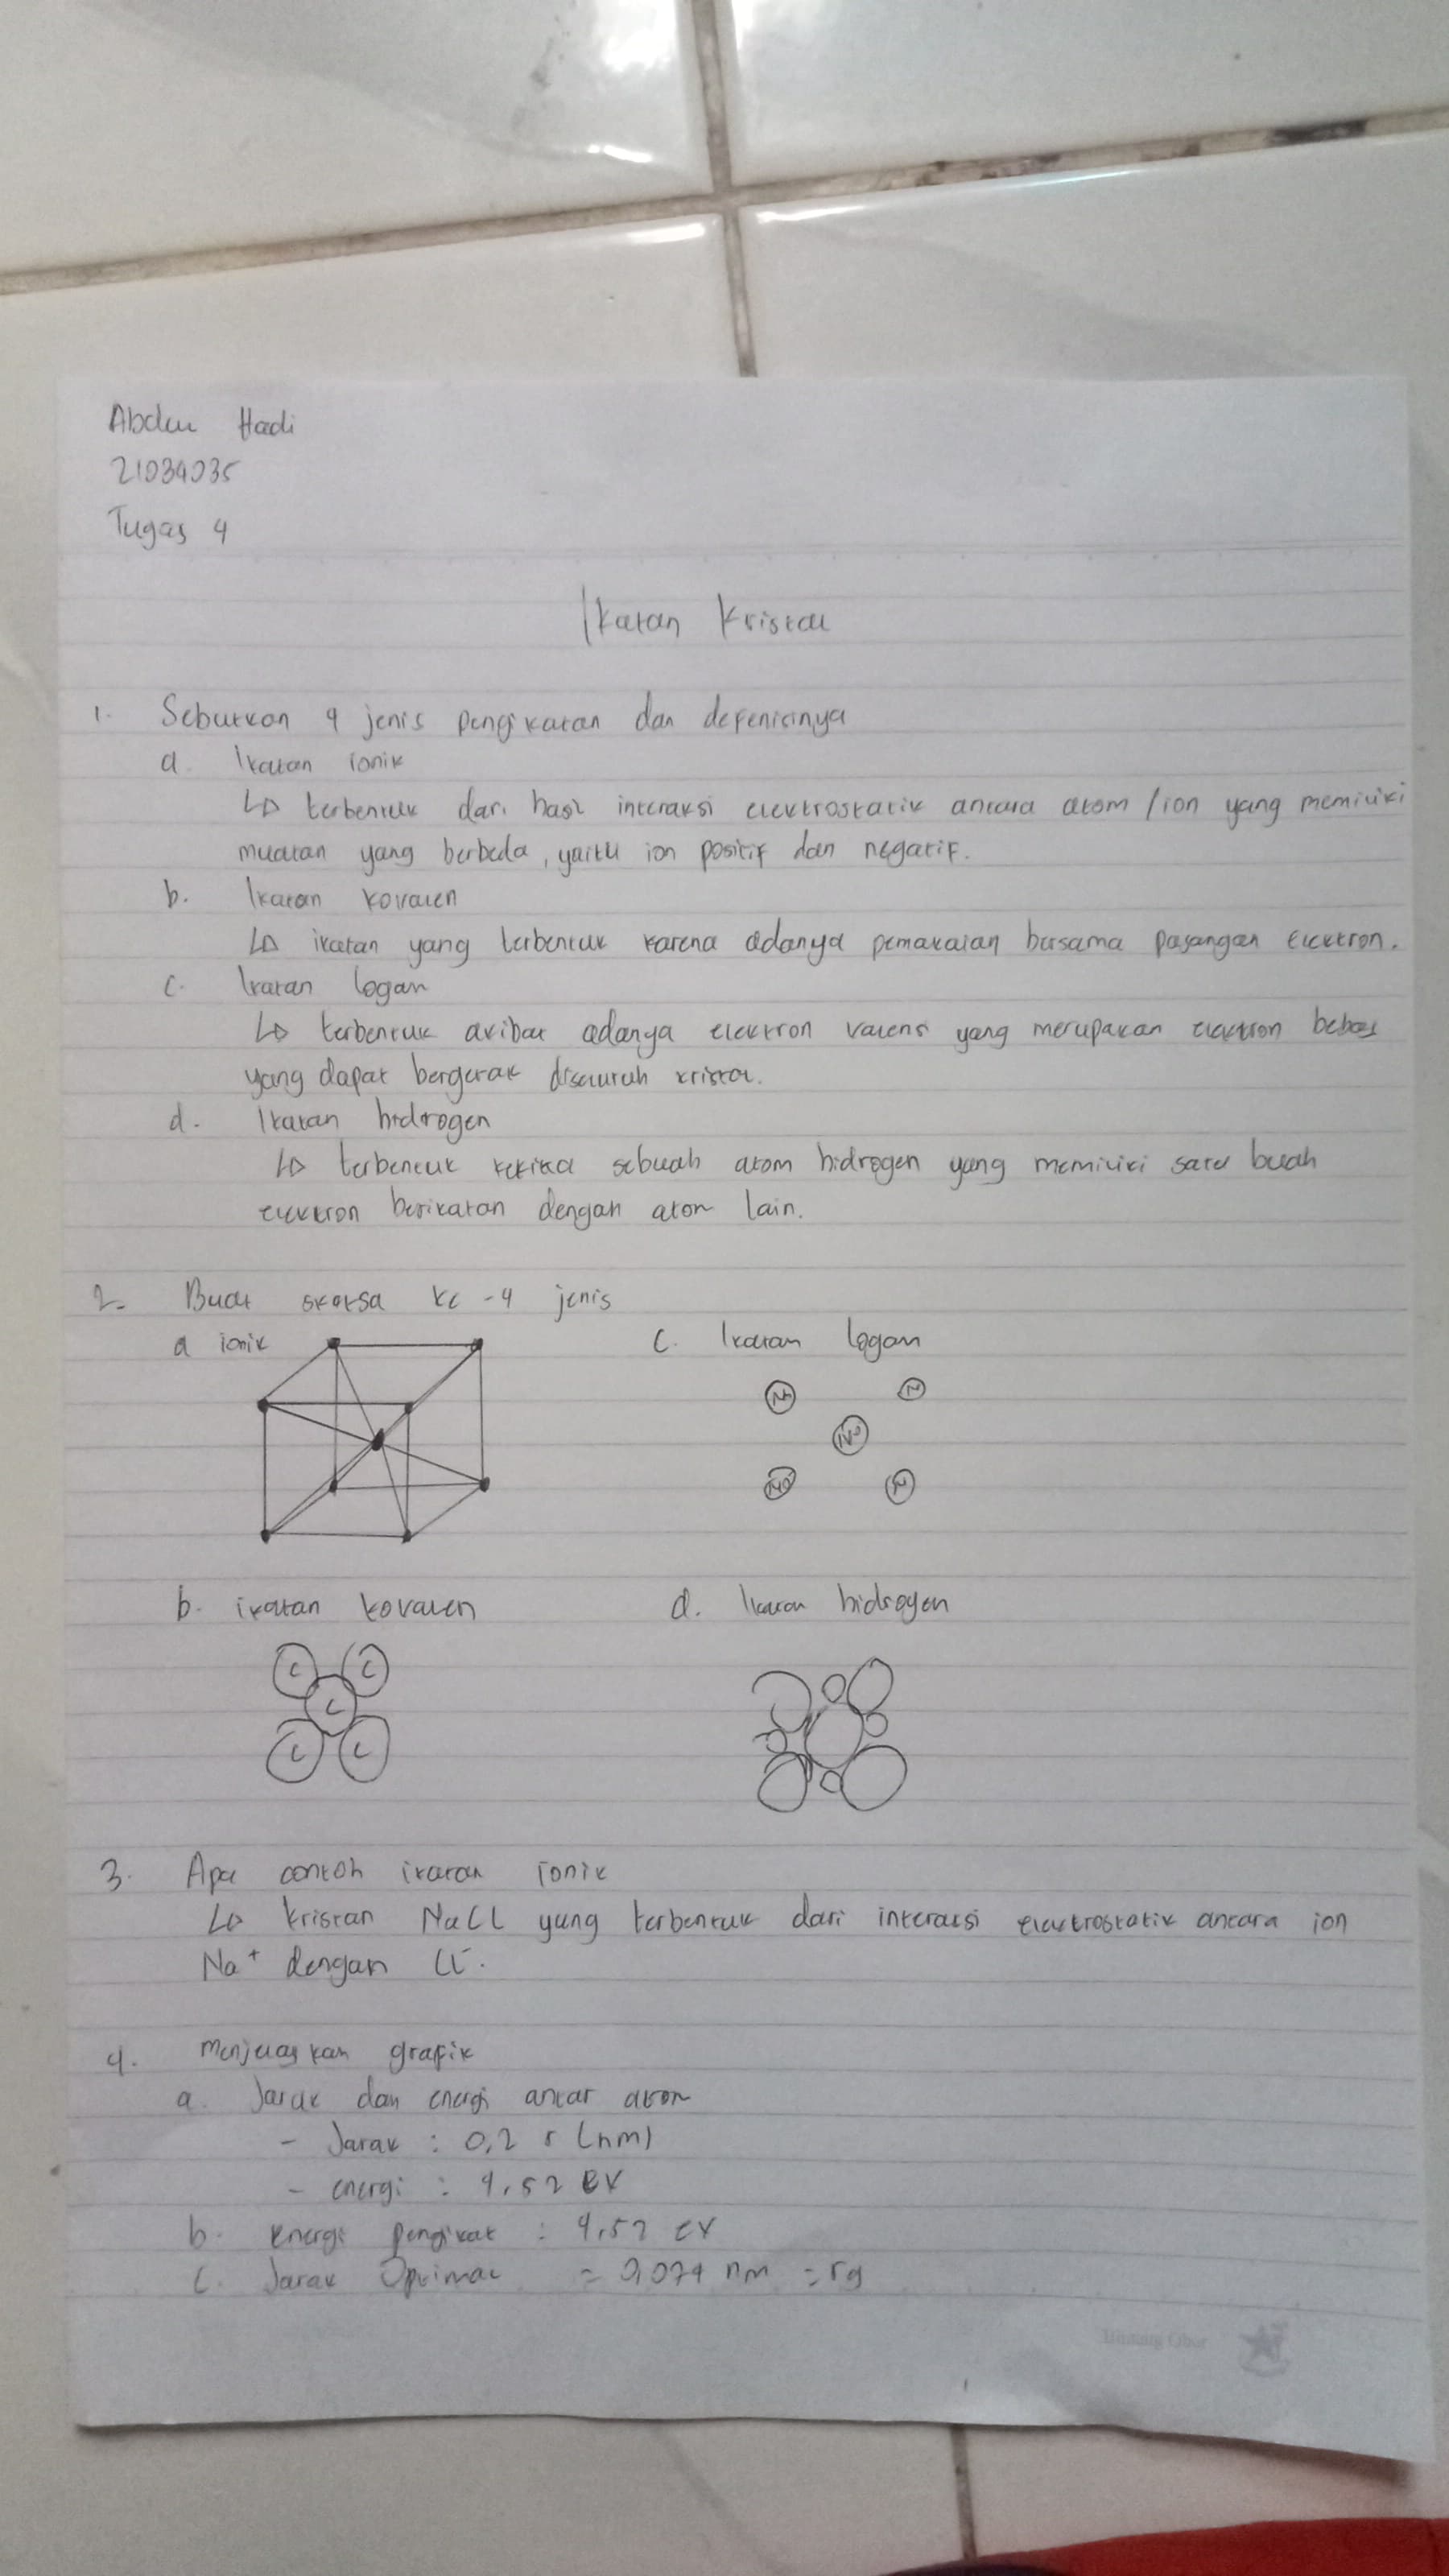 Abdul Hadi
21034035
Tugas 4
Ikatan Kristal
1. Sebutkan 4 jenis pengikatan dan defenisinya
a. Ikatan ionik
↳ terbentuk dari hasil interaksi elektrostatik antara atom / ion yang memiliki
muatan yang berbeda, yaitu ion positif dan negatif.
b. Ikatan kovalen
↳ ikatan yang terbentuk karena adanya pemakaian bersama pasangan elektron.
c. Ikatan logam
↳ terbentuk akibat adanya elektron valensi yang merupakan elektron bebas
yang dapat bergerak diseluruh kristal.
d. Ikatan hidrogen
↳ terbentuk ketika sebuah atom hidrogen yang memiliki satu buah
elektron berikatan dengan atom lain.
2. Buat sketsa ke-4 jenis
a ionik
c. Ikatan logam
Na N
Na
Na N
b. ikatan kovalen
d. Ikatan hidrogen
C C
C
C C
3. Apa contoh ikatan ionik
↳ kristal NaCl yang terbentuk dari interaksi elektrostatik antara ion
Na⁺ dengan Cl⁻.
4. Menjelaskan grafik
a. Jarak dan energi antar atom
- Jarak : 0,2 r (nm)
- energi : 4,52 eV
b. energi pengikat : 4,52 eV
c. Jarak Optimal = 0,074 nm =
Bintang Obor